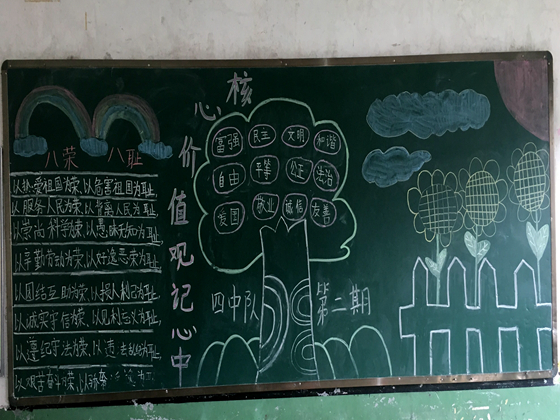 八荣 八耻
以热爱祖国为荣,以危害祖国为耻,
以服务人民为荣,以背离人民为耻,
以崇尚科学为荣,以愚昧无知为耻,
以辛勤劳动为荣,以好逸恶劳为耻,
以团结互助为荣,以损人利己为耻,
以诚实守信为荣,以见利忘义为耻,
以遵纪守法为荣,以违法乱纪为耻,
以艰苦奋斗为荣,以骄奢
核心价值观记心中
富强 民主 文明 和谐
自由 平等 公正 法治
爱国 敬业 诚信 友善
四中队 第二期